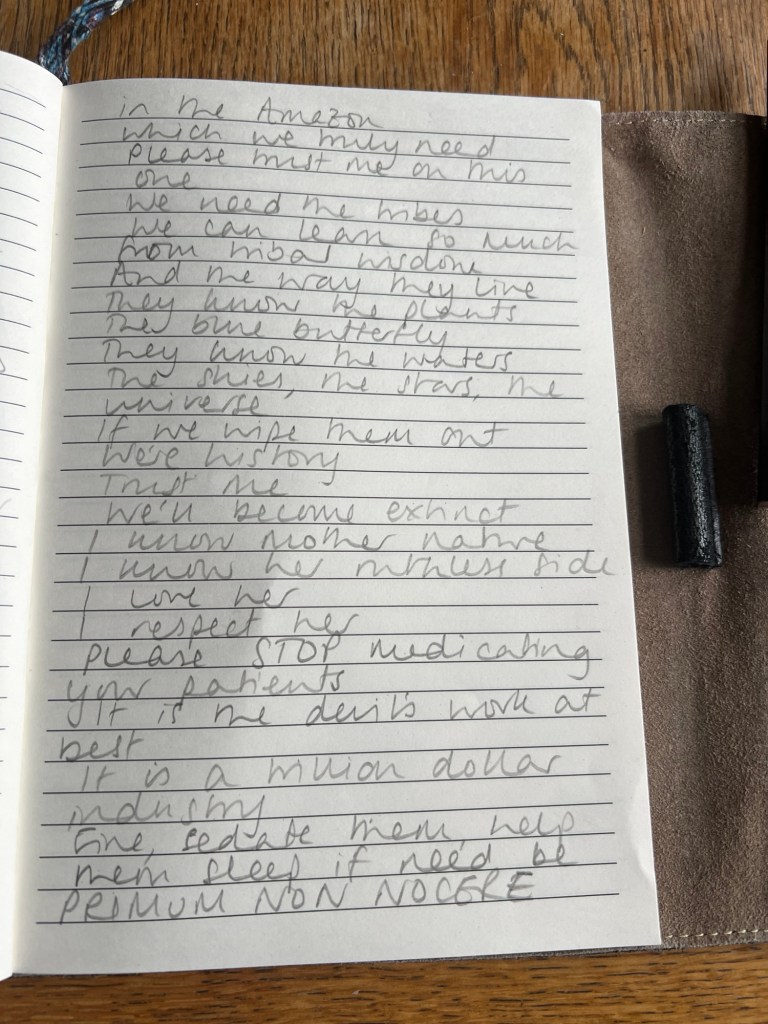 in the Amazon
which we truly need
please trust me on this
one
We need the tribes
We can learn so much
from tribal wisdom
And the way they live
They know the plants
The blue butterfly
They know the waters
The skies, the stars, the
universe
If we wipe them out
We're history
Trust me
We'll become extinct
I know mother nature
I know her ruthless side
I love her
I respect her
please STOP medicating
your patients
It is the devil's work at
best
It is a trillion dollar
industry
Fine, sedate them, help
them sleep if need be
PRIMUM NON NOCERE